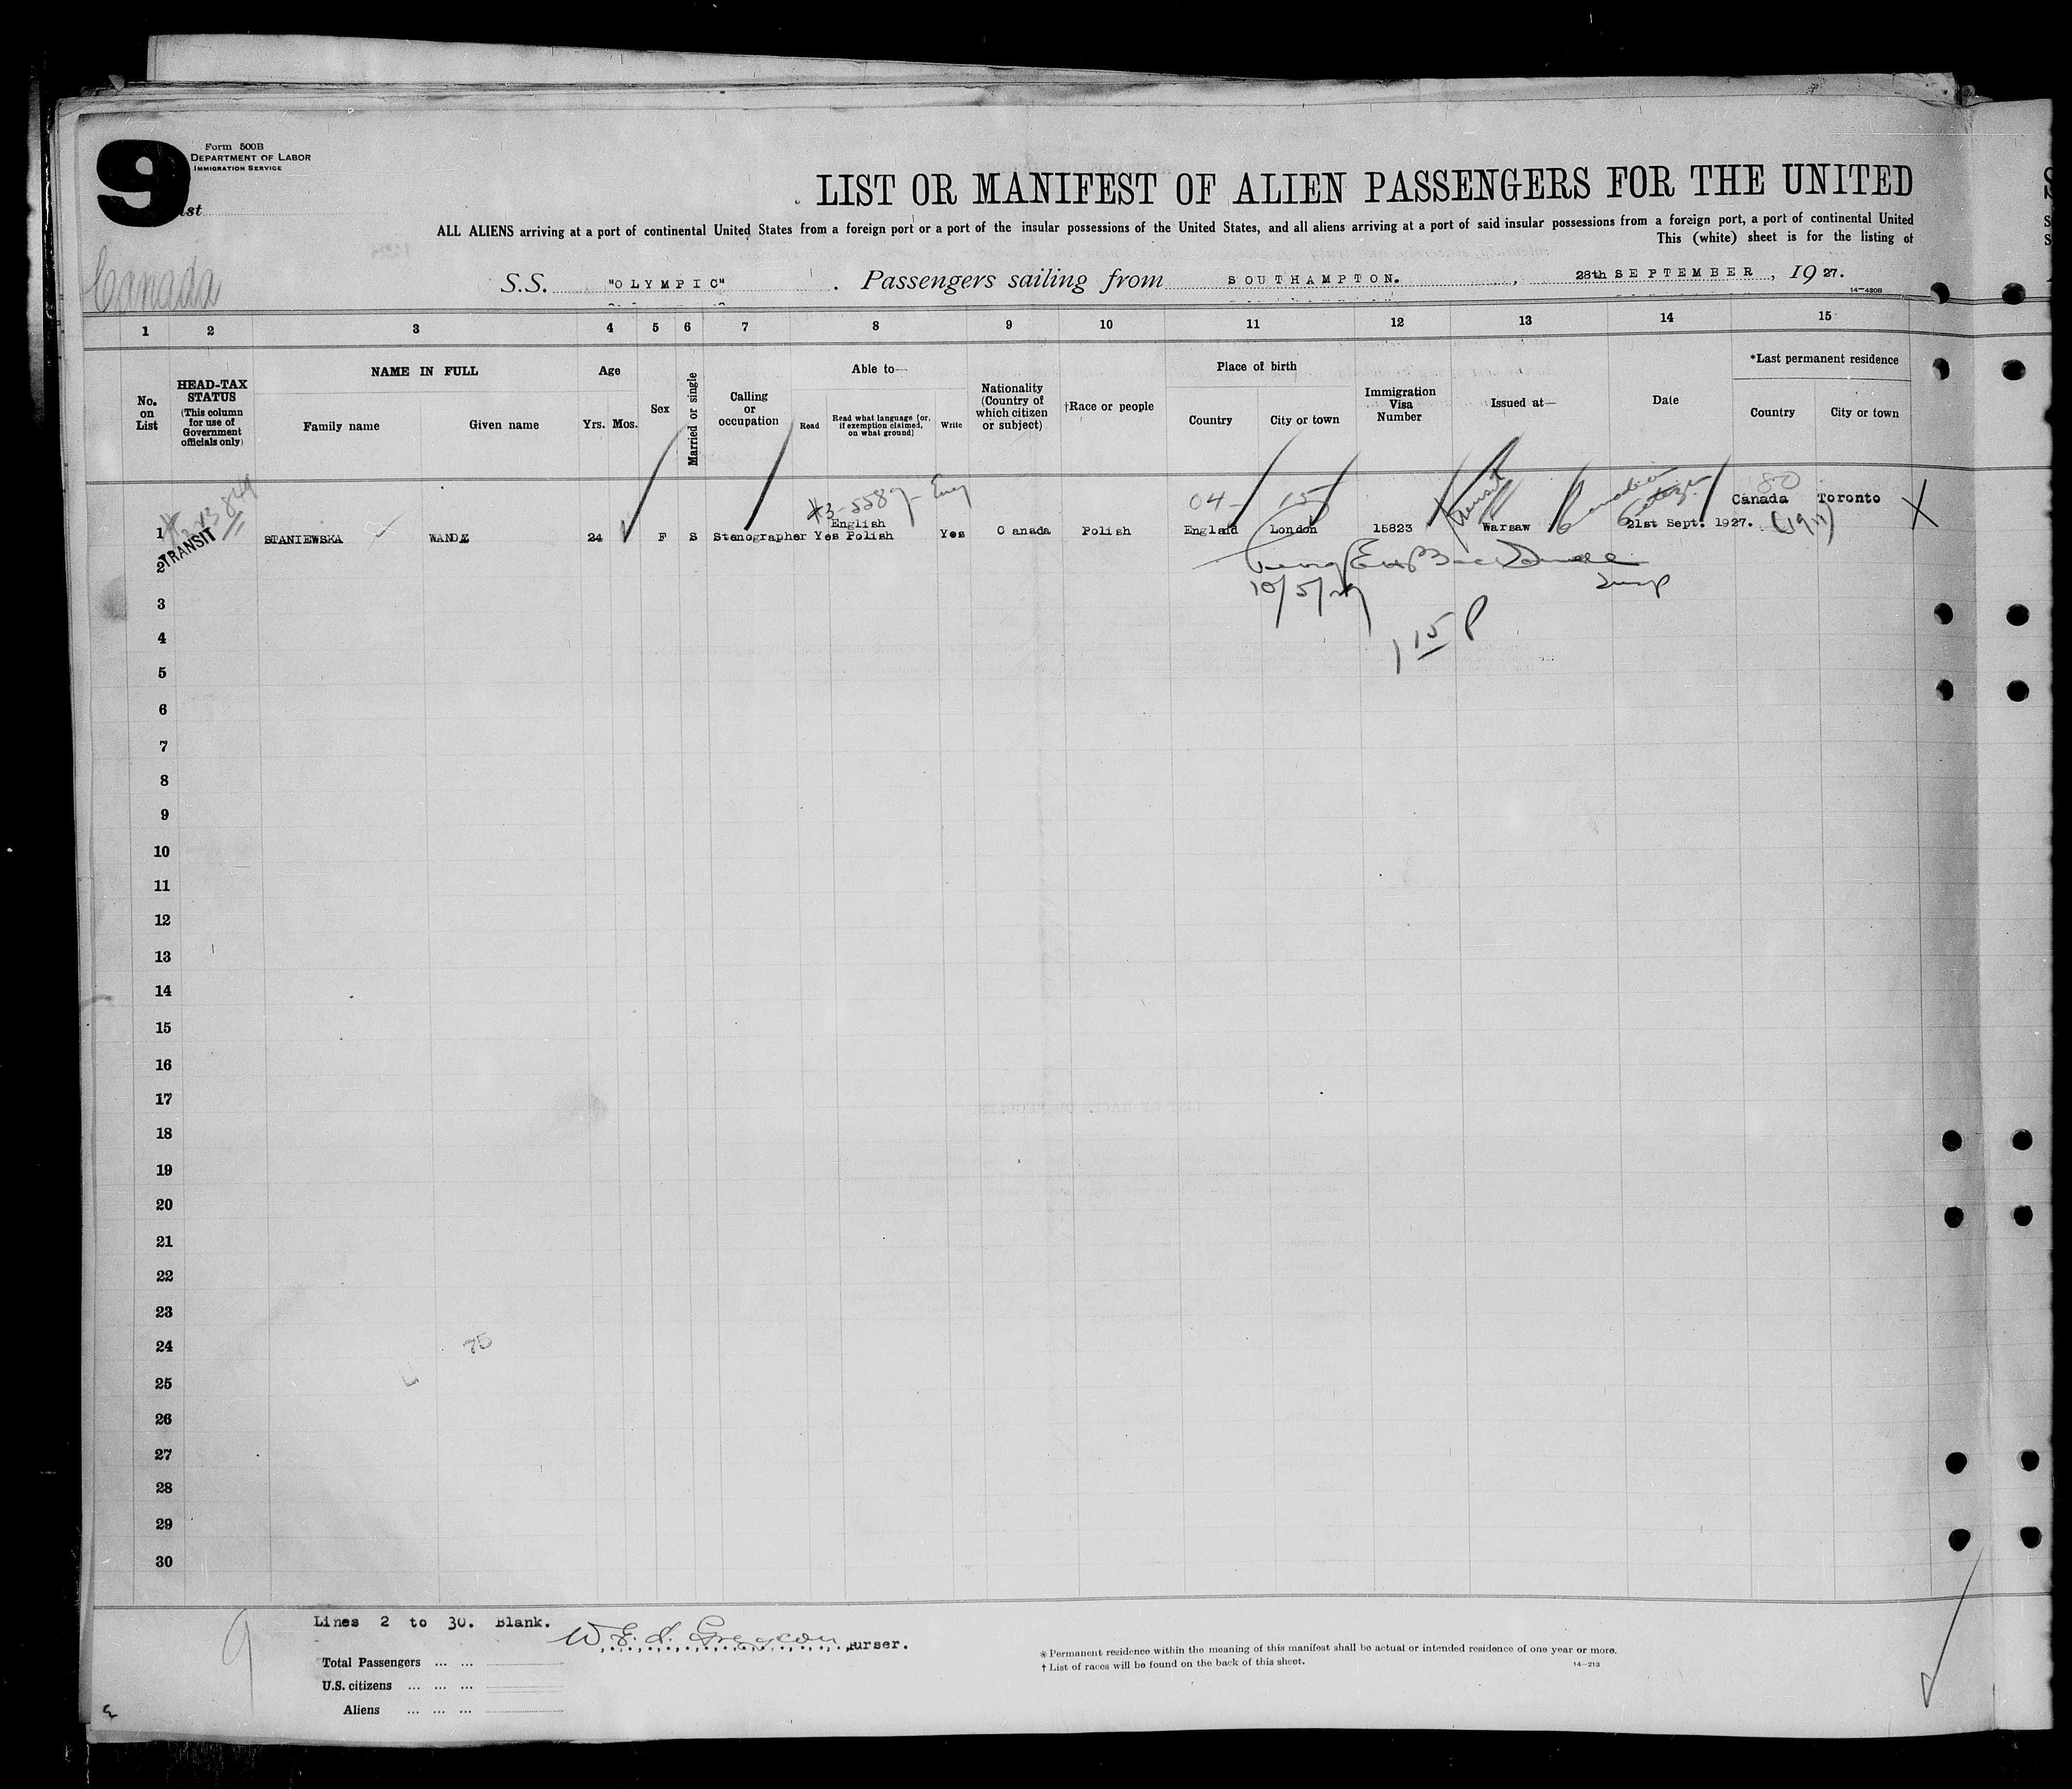 9
Form 500B
DEPARTMENT OF LABOR
IMMIGRATION SERVICE
LIST OR MANIFEST OF ALIEN PASSENGERS FOR THE UNITED
ALL ALIENS arriving at a port of continental United States from a foreign port or a port of the insular possessions of the United States, and all aliens arriving at a port of said insular possessions from a foreign port, a port of continental United
This (white) sheet is for the listing of
Canada
S.S. "OLYMPIC" Passengers sailing from SOUTHAMPTON. , 28th SEPTEMBER, 1927.
14-430B
1 2 3 4 5 6 7 8 9 10 11 12 13 14 15
No. on List
HEAD-TAX STATUS
(This column for use of Government officials only)
NAME IN FULL
Family name Given name
Age
Yrs. Mos.
Sex
Married or single
Calling or occupation
Able to—
Read
Read what language [or, if exemption claimed, on what ground]
Write
Nationality (Country of which citizen or subject)
†Race or people
Place of birth
Country City or town
Immigration Visa Number
Issued at—
Date
*Last permanent residence
Country City or town
04- 15
Transit
Canadian
80
Canada Toronto
English
1 STANIEWSKA 24 F S Stenographer Yes Polish Yes Canada Polish England London 15823 Warsaw 21st Sept. 1927.
TRANSIT
2
10/5/27
3
1 15 P
4
5
6
7
8
9
10
11
12
13
14
15
16
17
18
19
20
21
22
23
24
75
25
26
27
28
29
30
9
Lines 2 to 30. Blank.
Purser.
Total Passengers ... ...
U.S. citizens ... ... ...
Aliens ... ... ...
* Permanent residence within the meaning of this manifest shall be actual or intended residence of one year or more.
† List of races will be found on the back of this sheet.
14-213